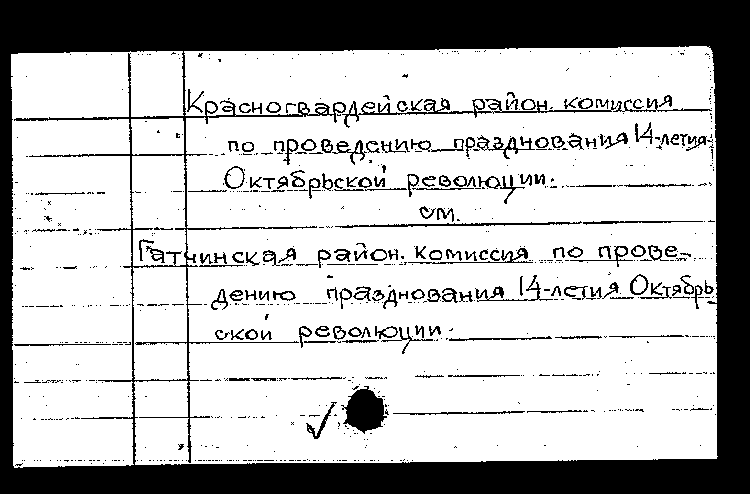 Красногвардейская район. комиссия
по проведению празднования 14-летия
Октябрьской революции.
см.
Гатчинская район. комиссия по прове-
дению празднования 14-летия Октябрь
ской революции.